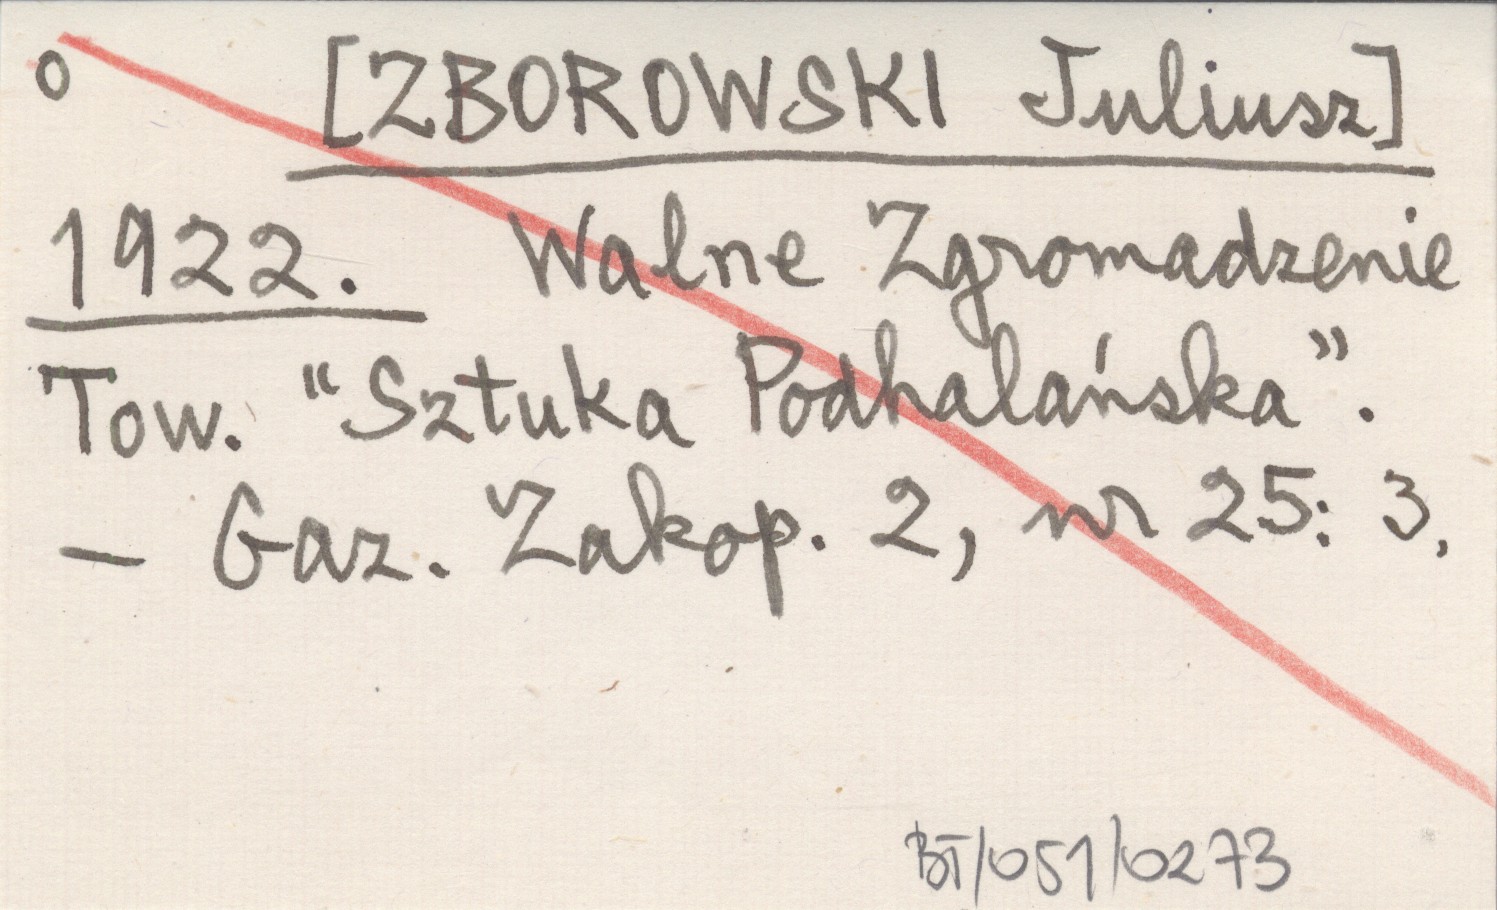 o [ZBOROWSKI Juliusz]
1922. Walne Zgromadzenie
Tow. "Sztuka Podhalańska".
— Gaz. Zakop. 2, nr 25: 3.
BT/051/0273